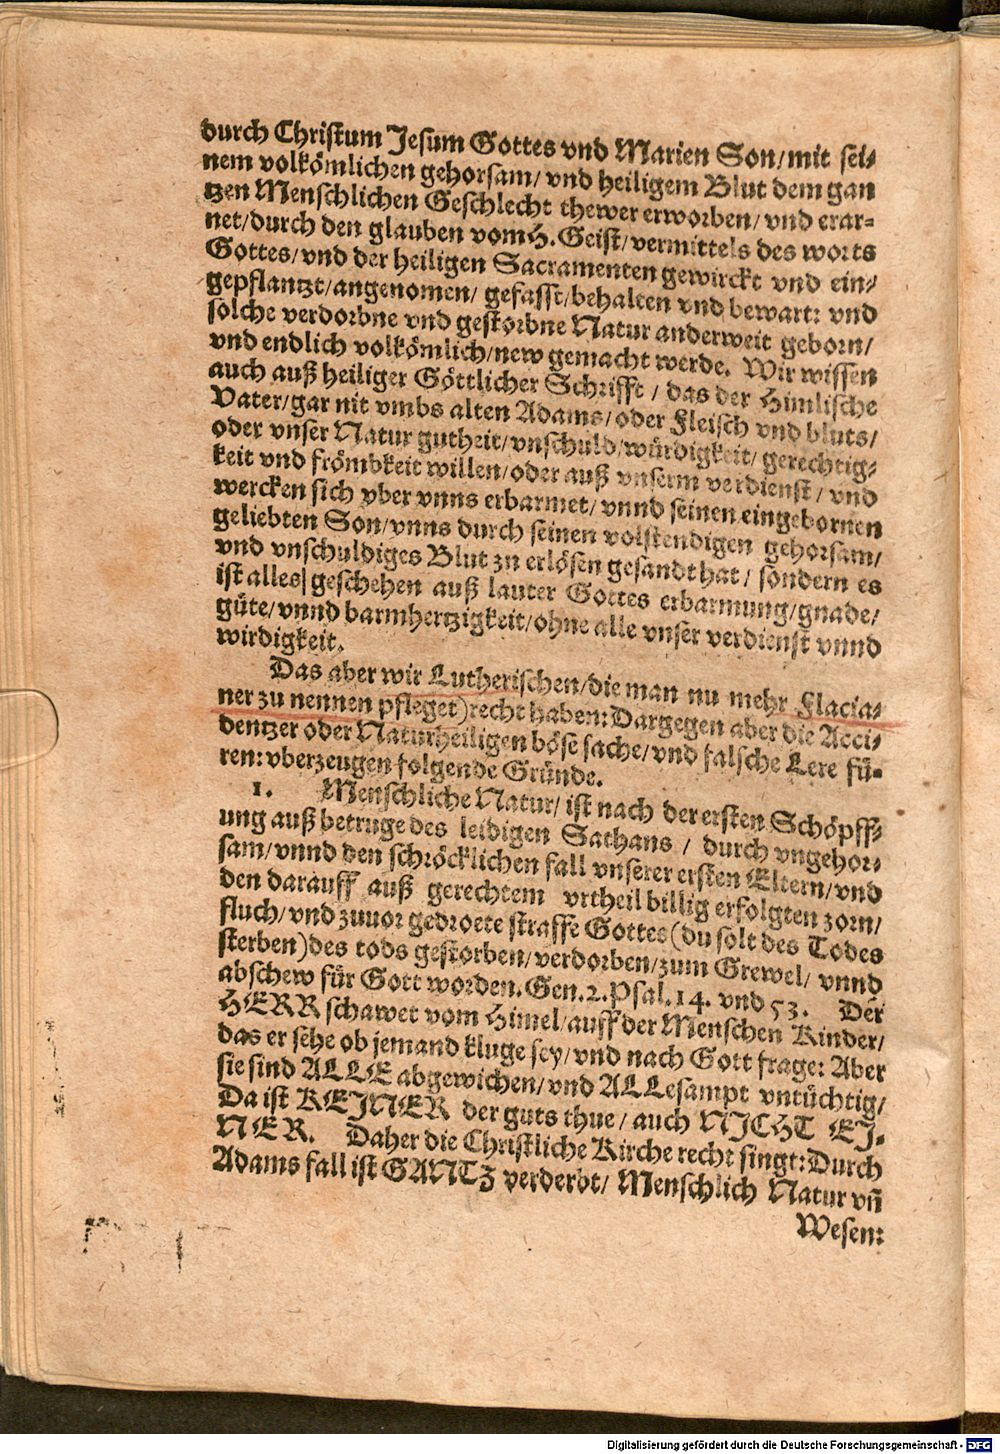 durch Christum Jesum Gottes vnd Marien Son/mit sei⸗
nem volkömlichen gehorsam/ vnd heiligem Blut dem gan
tzen Menschlichen Geschlecht thewer erworben/ vnd erar⸗
net/durch den glauben vom H. Geist/vermittels des worts
Gottes/vnd der heiligen Sacramenten gewirckt vnd ein⸗
gepflantzt/angenomen/ gefasst/behalten vnd bewart: vnd
solche verdorbne vnd gestorbne Natur anderweit geborn/
vnd endlich volkömlich/new gemacht werde. Wir wissen
auch auß heiliger Göttlicher Schrifft / das der Himlische
Vater/gar nit vmbs alten Adams/oder Fleisch vnd bluts/
oder vnser Natur gutheit/vnschuld/würdigkeit/ gerechtig⸗
keit vnd frömbkeit willen/oder auß vnserm verdienst / vnd
wercken sich vber vnns erbarmet/ vnnd seinen eingebornen
geliebten Son/vnns durch seinen volstendigen gehorsam/
vnd vnschuldiges Blut zu erlösen gesandt hat / sondern es
ist alles geschehen auß lauter Gottes erbarmung/gnade/
güte/vnnd barmhertzigkeit/ohne alle vnser verdienst vnnd
wirdigkeit.
Das aber wir Lutherischen/die man nu mehr Flacia⸗
ner zu nennen pfleget)recht haben: Dargegen aber die Acci⸗
dentzer oder Naturheiligen böse sache/vnd falsche Lere fü⸗
ren: vberzeugen folgende Gründe.
1. Menschliche Natur/ ist nach der ersten Schöpff⸗
ung auß betruge des leidigen Sathans / durch vngehor⸗
sam/vnnd den schröcklichen fall vnserer ersten Eltern/vnd
den darauff auß gerechtem vrtheil billig erfolgten zorn/
fluch/vnd zuuor gedroete straffe Gottes (du solt des Todes
sterben)des tods gestorben/verdorben/zum Grewel/ vnnd
abschew für Gott worden. Gen. 2. Psal. 14. vnd 53. Der
HERR schawet vom Himel/auff der Menschen Kinder/
das er sehe ob jemand kluge sey/vnd nach Gott frage: Aber
sie sind ALLE abgewichen/vnd ALLesampt vntüchtig/
Da ist KEINER der guts thue / auch NICHT EI⸗
NER. Daher die Christliche Kirche recht singt: Durch
Adams fall ist GANTZ verderbt/ Menschlich Natur vñ
Wesen:
Digitalisierung gefördert durch die Deutsche Forschungsgemeinschaft - DFG